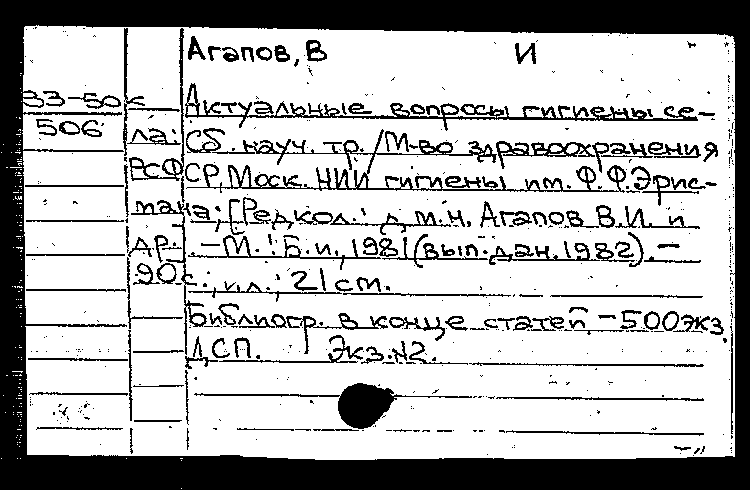 Агапов, В И
33-50 к Актуальные вопросы гигиены се-
506 ла: Сб. науч. тр./М-во здравоохранения
РСФСР, Моск. НИИ гигиены им. Ф.Ф.Эрис-
мана; [Редкол.: д.м.н. Агапов В.И. и
др.]. - М.: Б.и., 1981 (вып.дан.1982). -
90 с.; ил.; 21 см.
Библиогр. в конце статей. - 500 экз.
ДСП. Экз.N2.